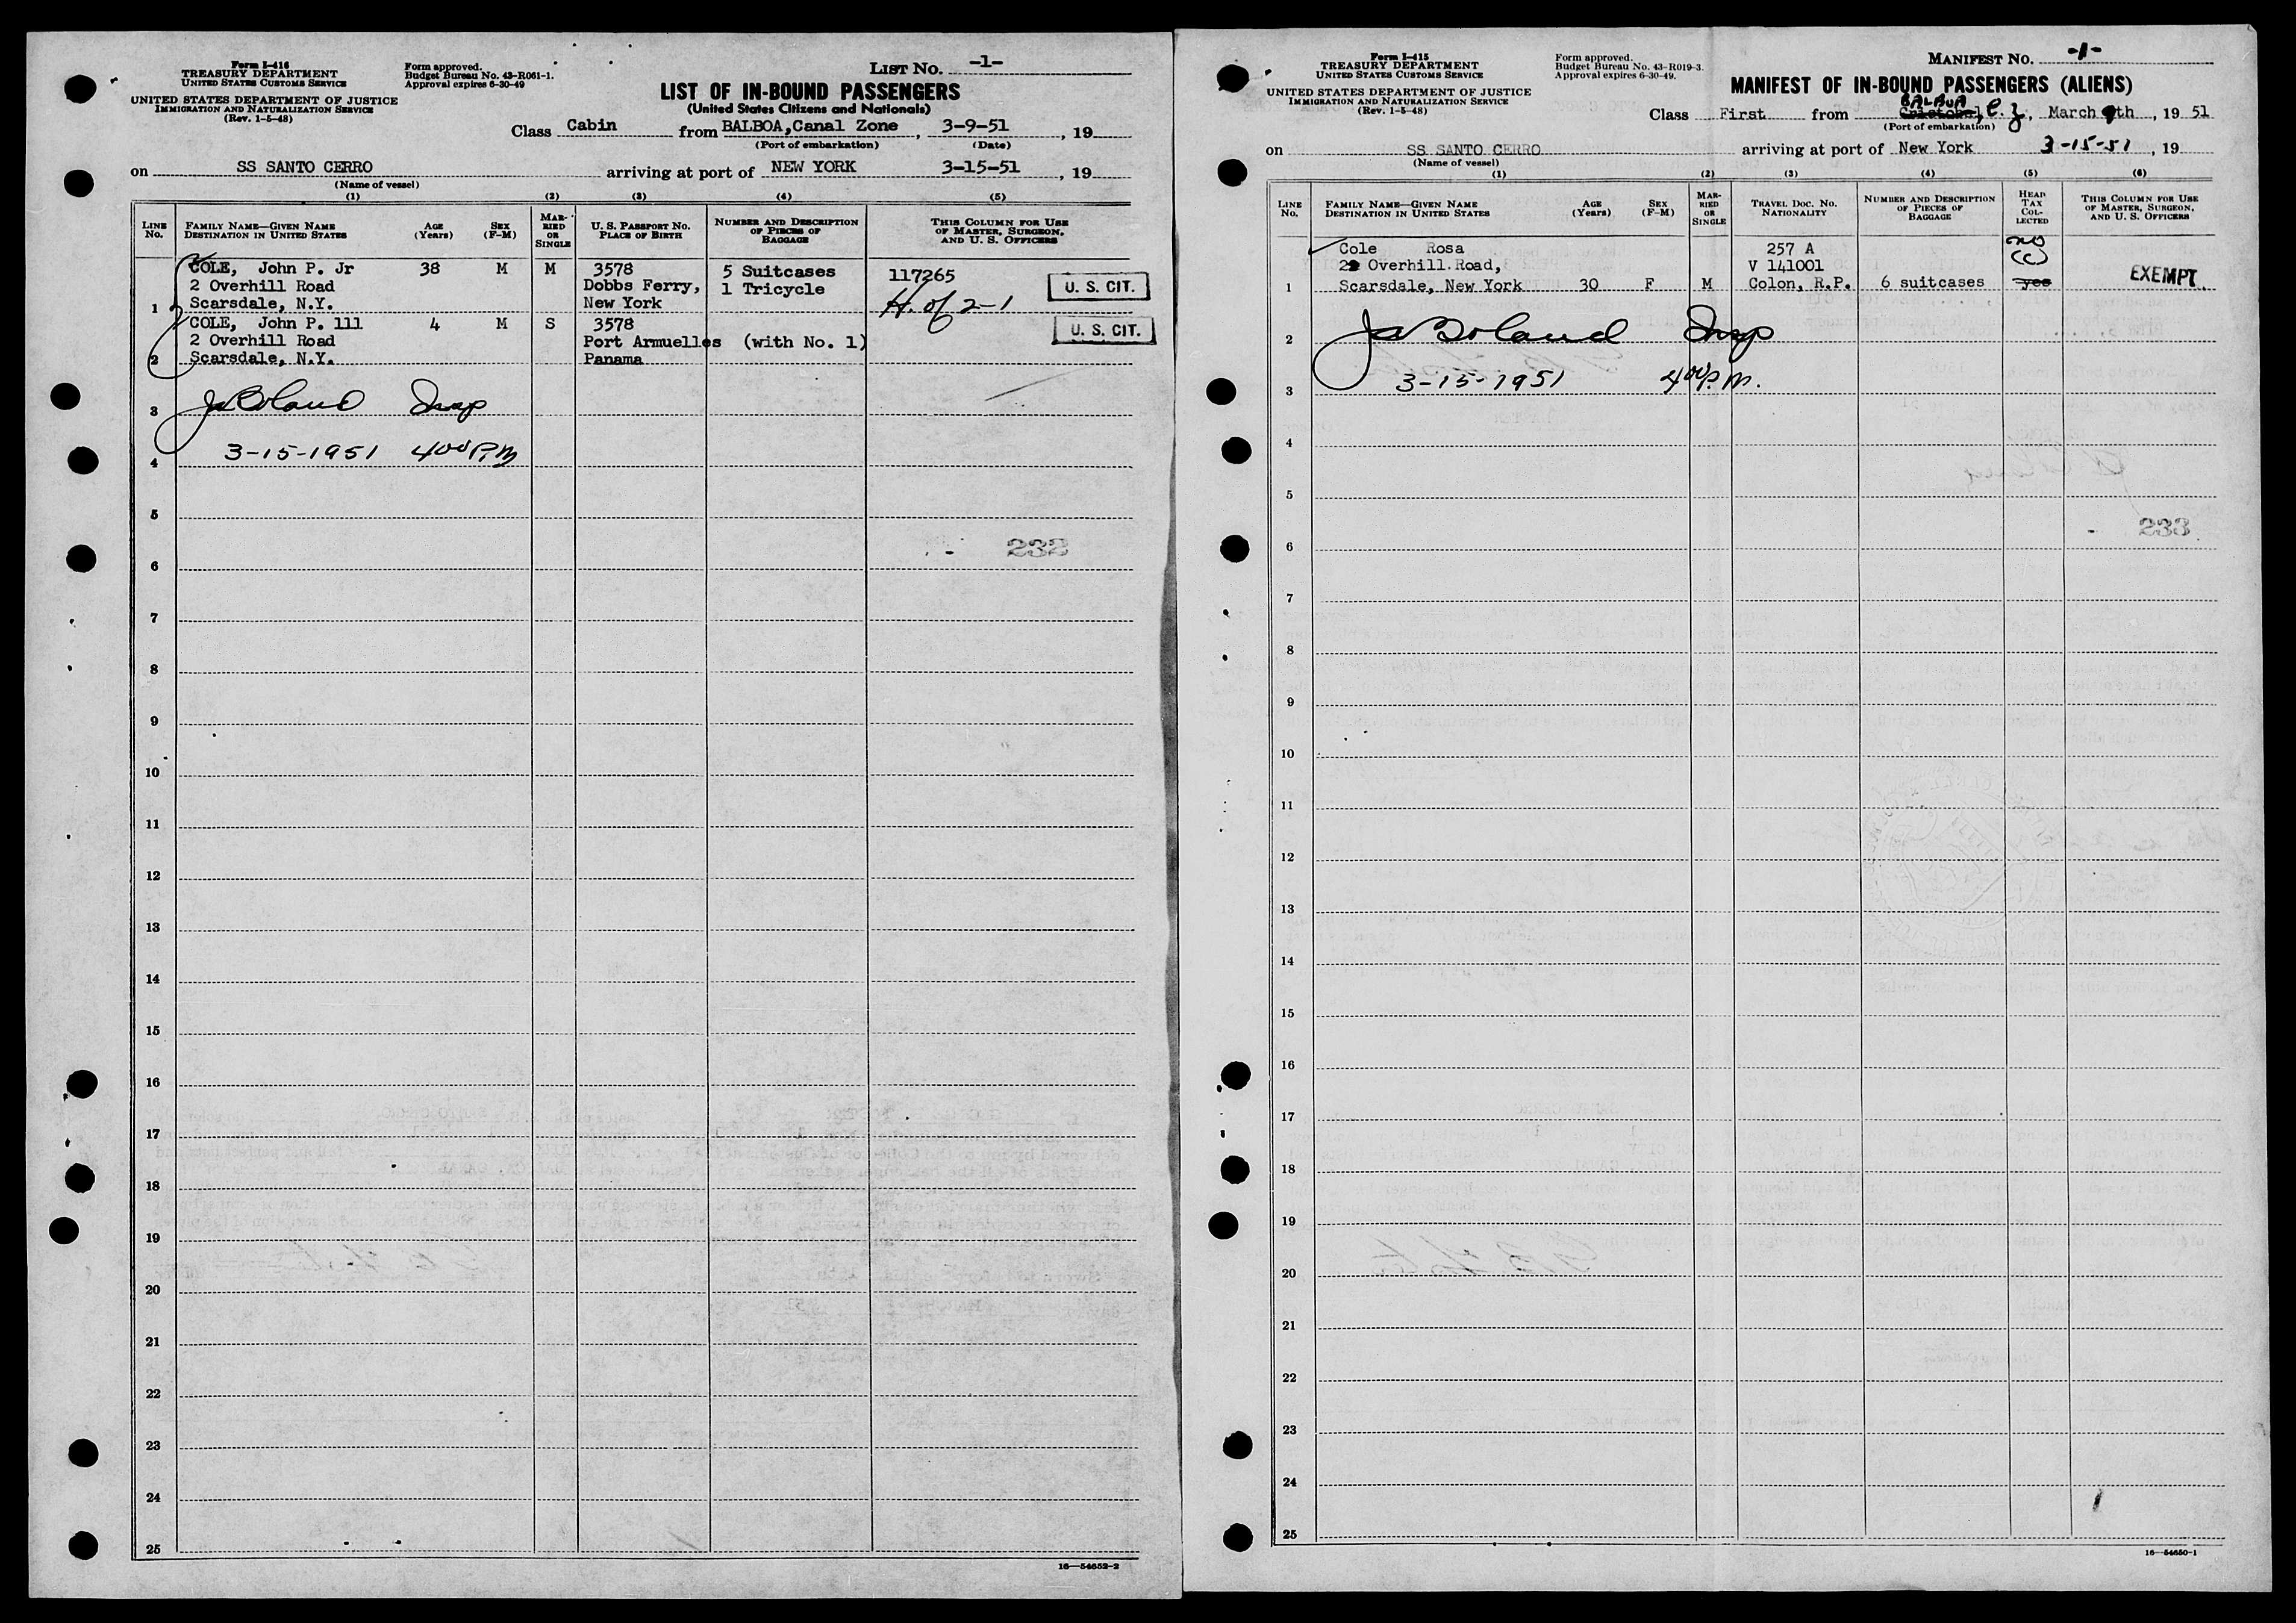 Form I-416
TREASURY DEPARTMENT
UNITED STATES CUSTOMS SERVICE
UNITED STATES DEPARTMENT OF JUSTICE
IMMIGRATION AND NATURALIZATION SERVICE
(Rev. 1-5-48)
Form approved.
Budget Bureau No. 43-R061-1.
Approval expires 6-30-49
LIST NO. -1-
LIST OF IN-BOUND PASSENGERS
(United States Citizens and Nationals)
Class Cabin from BALBOA, Canal Zone, 3-9-51, 19
(Port of embarkation) (Date)
on SS SANTO CERRO arriving at port of NEW YORK 3-15-51, 19
(Name of vessel)
(1) (2) (3) (4) (5)
LINE No. FAMILY NAME—GIVEN NAME DESTINATION IN UNITED STATES AGE (Years) SEX (F-M) MARRIED OR SINGLE U. S. PASSPORT NO. PLACE OF BIRTH NUMBER AND DESCRIPTION OF PIECES OF BAGGAGE THIS COLUMN FOR USE OF MASTER, SURGEON, AND U. S. OFFICERS
COLE, John P. Jr 38 M M 3578 5 Suitcases 117265 U. S. CIT.
2 Overhill Road Dobbs Ferry, 1 Tricycle
1 Scarsdale, N.Y. New York H. of 2-1
COLE, John P. 111 4 M S 3578 U. S. CIT.
2 Overhill Road Port Armuelles (with No. 1)
2 Scarsdale, N.Y. Panama
3 Boland Insp
4 3-15-1951 400 P.M
5
232
6
7
8
9
10
11
12
13
14
15
16
17
18
19
20
21
22
23
24
25
16—54652-2
Form I-415
TREASURY DEPARTMENT
UNITED STATES CUSTOMS SERVICE
UNITED STATES DEPARTMENT OF JUSTICE
IMMIGRATION AND NATURALIZATION SERVICE
(Rev. 1-5-48)
Form approved.
Budget Bureau No. 43-R019-3.
Approval expires 6-30-49.
MANIFEST NO. -1-
MANIFEST OF IN-BOUND PASSENGERS (ALIENS)
BALBOA
Class First from Cristobal, C.Z., March 9th, 19 51
(Port of embarkation)
on SS SANTO CERRO arriving at port of New York 3-15-51, 19
(Name of vessel)
(1) (2) (3) (4) (5) (6)
LINE No. FAMILY NAME—GIVEN NAME DESTINATION IN UNITED STATES AGE (Years) SEX (F-M) MARRIED OR SINGLE TRAVEL DOC. NO. NATIONALITY NUMBER AND DESCRIPTION OF PIECES OF BAGGAGE HEAD TAX COLLECTED THIS COLUMN FOR USE OF MASTER, SURGEON, AND U. S. OFFICERS
Cole Rosa 257 A no
2 Overhill Road, V 141001 (C)
1 Scarsdale, New York 30 F M Colon, R.P. 6 suitcases yes EXEMPT
2 Boland Insp
3 3-15-1951 400 P.M.
4
5
233
6
7
8
9
10
11
12
13
14
15
16
17
18
19
20
21
22
23
24
25
16—54650-1